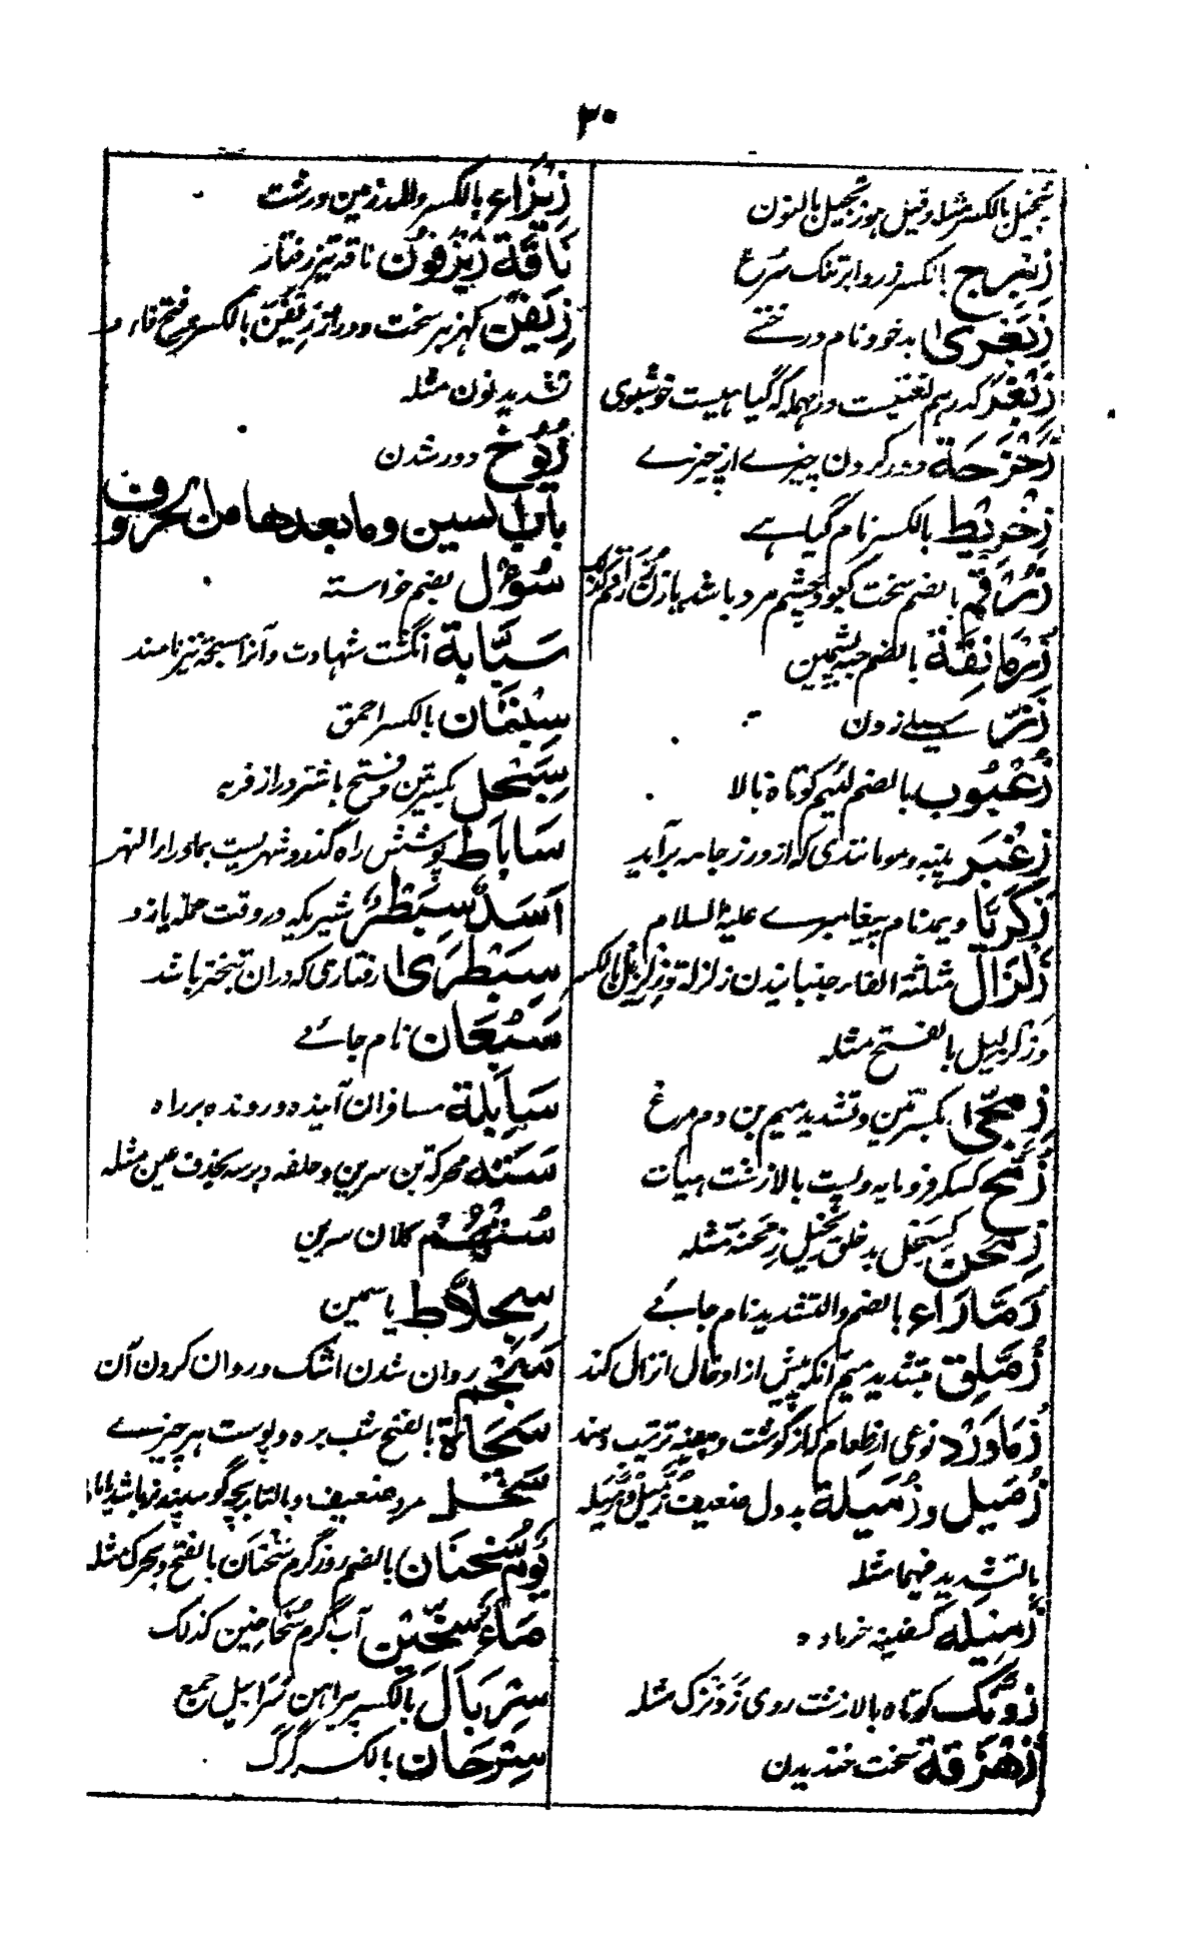 ۳۰
بالکسر مثله وقیل هو زنجیل بالنون
زِبْرِج بالکسر زر و ابر تنک سرخ
زِبَعْرىٰ بدخو و نام درختے
زَغْبَر که گیاهیست خوشبوی
زَحْزَحَة دور کردن چیزے از چیزے
زِخْرِیط بالکسر نام گیاہے
زُرْقُم بالضم سخت کبود چشم مرد باشد یا زن
زُرْمَانِقَة بالضم جبه پشمین
زَرّ سیلے زدن
زُعْبُوب بالضم لئیم کوتاه بالا
زِغْبِر پنبه و مو مانندی که از ورز جامه برآید
زَکَرِیَّا ویمد نام پیغامبرے علیه السلام
زَلْزَال مثلثة الفاء جنبانیدن زلزلة و زلزیل بالکسر
و زلزلیل بالفتح مثله
زِمِجّیٰ بکسرتین و تشدید میم بن دم مرغ
زُمَّح کسکر فرومایه و پست بالا زشت هیات
زِمَحْن کسبحل بدخلق بخیل زمحنة مثله
زُمَّارَاء بالضم والتشدید نام جائے
زُمَّلِق بتشدید میم آنکه پیش از ادخال انزال کند
زُمَاوَرْد نوعی از طعام که از گوشت و بیضه ترتیب دهند
زُمَیْل و زُمَیْلَة بد دل ضعیف زُمَّیْل و زُمَّیْلَه
بالتشدید فیهما مثله
زَمِیْلَه کسفینه خر ماده
زَوَنَّک کوتاه بالا زشت روی زَوَنْزَک مثله
زَهْزَقَة سخت خندیدن
زِیْزَاء بالکسر والمد زمین درشت
نَاقَة زَیْزَفُون ناقه تیز رفتار
زِیَفْن کهزبر سخت و دراز زِیَفْنّ بالکسر مع فتح فاء و
تشدید نون مثله
زُیُوْخ دور شدن
باب السین وما بعدها من الحروف
سُؤْل بضم خواسته
سَبَّابَة انگشت شهادت و آنرا مسبحة نیز نامند
سِبْتَان بالکسر احمق
سِبَحْل بکسر سین و فتح با شتر دراز فربه
سَابَاط پوشش راه گذر و شهریست بماوراء النهر
اَسَدٌ سِبَطْرٌ شیریکه در وقت حمله یازد
سِبَطْرَىٰ رفتاری که دران تبختر باشد
سَبُعَان نام جائے
سَابِلَة مسافران آینده و رونده بر راه
سَتَه محرکة بن سرین و حلقه دبر سه بحذف عین مثله
سُتْهُم کلان سرین
سِجِلَّاط یاسمین
سَجْم روان شدن اشک و روان کردن آن
سَحَاة بالفتح شب پره و پوست هر چیزے
سَخْل مرد ضعیف و بالتا بچه گوسپند
یَوْم سُخْنَان بالضم روز گرم سَخْنَان بالفتح و یحرک مثله
مَاء سِخِّین آب گرم سُخَاخِین کذلک
سِرْبَال بالکسر پیراهن سرابیل جمع
سِرْحَان بالکسر گرگ